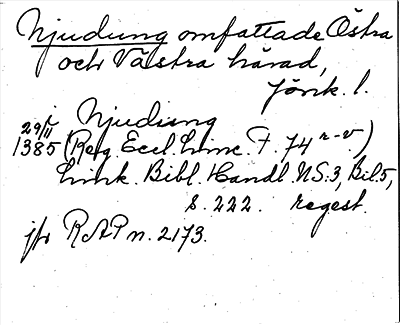 Njudung omfattade Östra
och Västra härad,
Jönk. l.
Njudung
29/11 1385 (Reg Eccl. Linc. F. 74 r-v)
Link. Bibl. Handl. NS:3, Bil. 5,
s. 222. regest.
jfr RAP n. 2173.